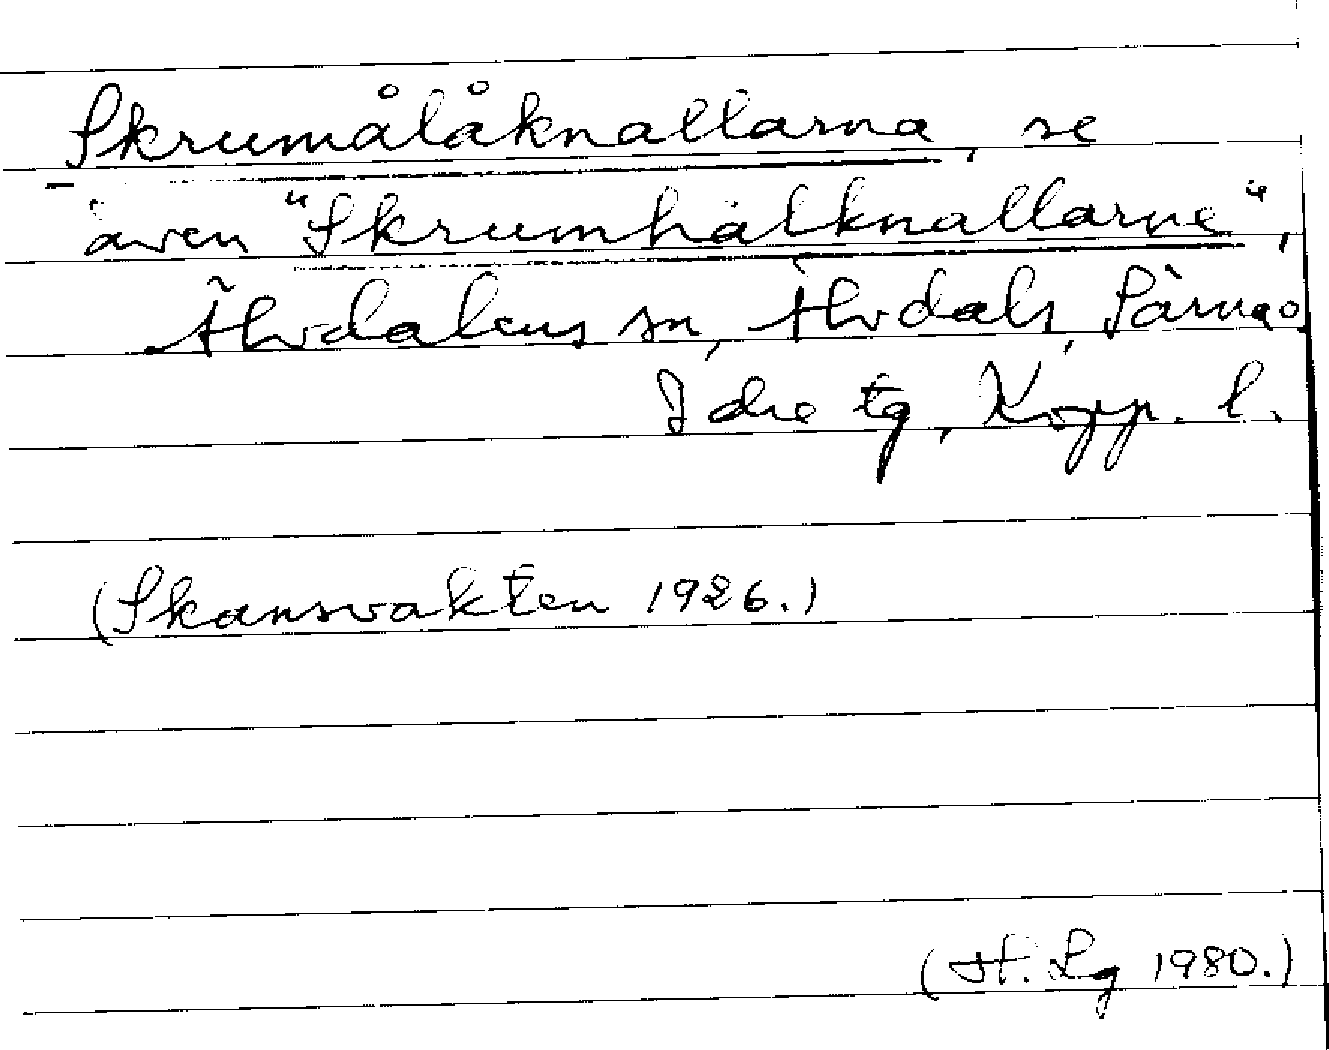 Skrumålåknallarna, se
även "Skrumhålknallarne",
Älvdalens sn, Älvdals, Särna o
Idre tg, Kopp. l.
(Skansvakten 1926.)
(H. Lg 1980.)